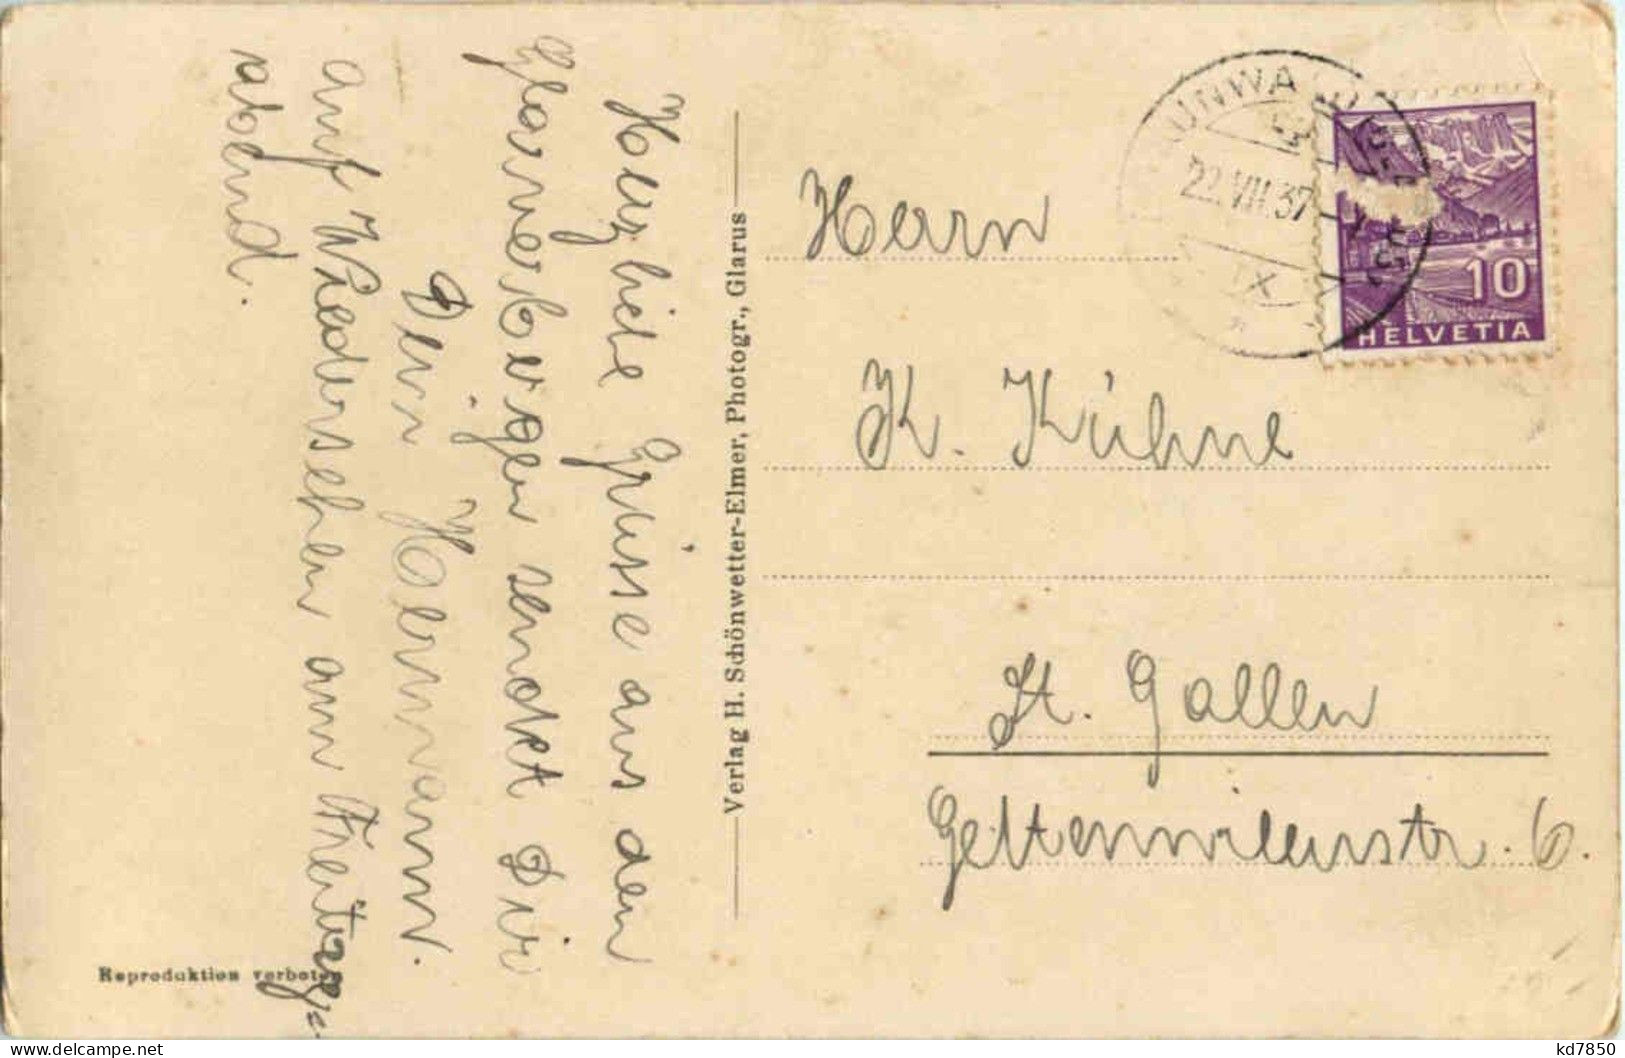 Herzliche Grüsse aus den
Glarnerbergen sendet Dir
Dein Hermann.
Auf Wiedersehen am Freitag-
abend.
Reproduktion verboten
Verlag H. Schönwetter-Elmer, Photogr., Glarus
22.VII.37
IX
10
HELVETIA
Herrn
K. Kühne
St. Gallen
Geltenwilenstr. 6.
kd7850